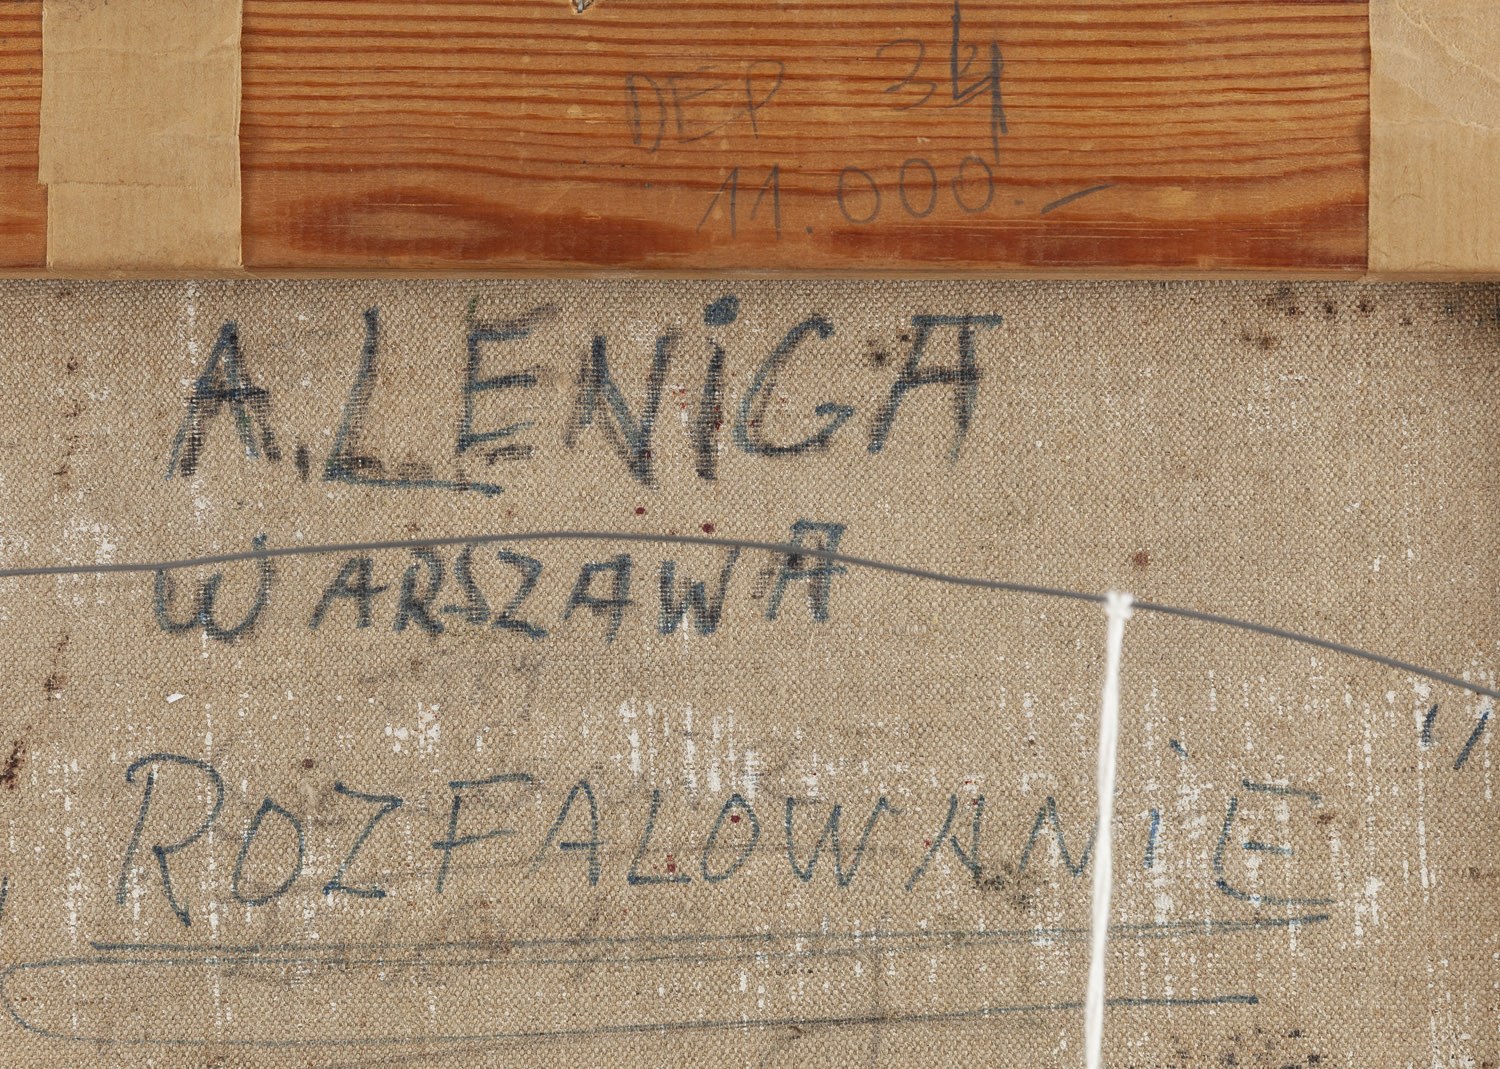 DEP 34
11.000.-
A. LENiGA
WARSZAWA
ROZFALOWANiE"